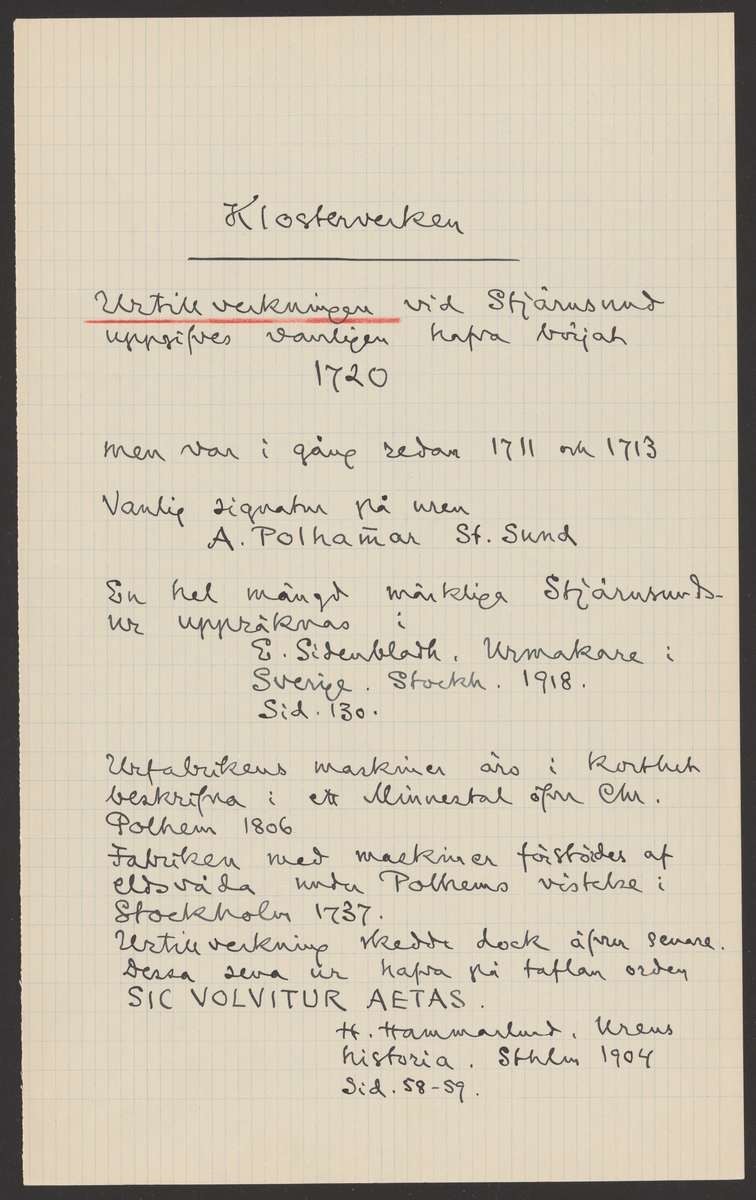 Klosterverken
Urtillverkningen vid Stjärnsund
uppgifves vanligen hafva börjat
1720
men var i gång redan 1711 och 1713
Vanlig signatur på uren
A. Polham̄ar St. Sund
En hel mängd märkliga Stjärnsunds-
ur uppräknas i
E. Sidenbladh. Urmakare i
Sverige. Stockh. 1918.
Sid. 130.
Urfabrikens maskiner äro i korthet
beskrifna i ett Minnestal öfver Chr.
Polhem 1806
Fabriken med maskiner förstördes af
eldsvåda under Polhems vistelse i
Stockholm 1737.
Urtillverkning skedde dock äfven senare.
Dessa sena ur hafva på taflan orden
SIC VOLVITUR AETAS.
H. Hammarlund. Urens
historia. Sthlm 1904
Sid. 58-59.